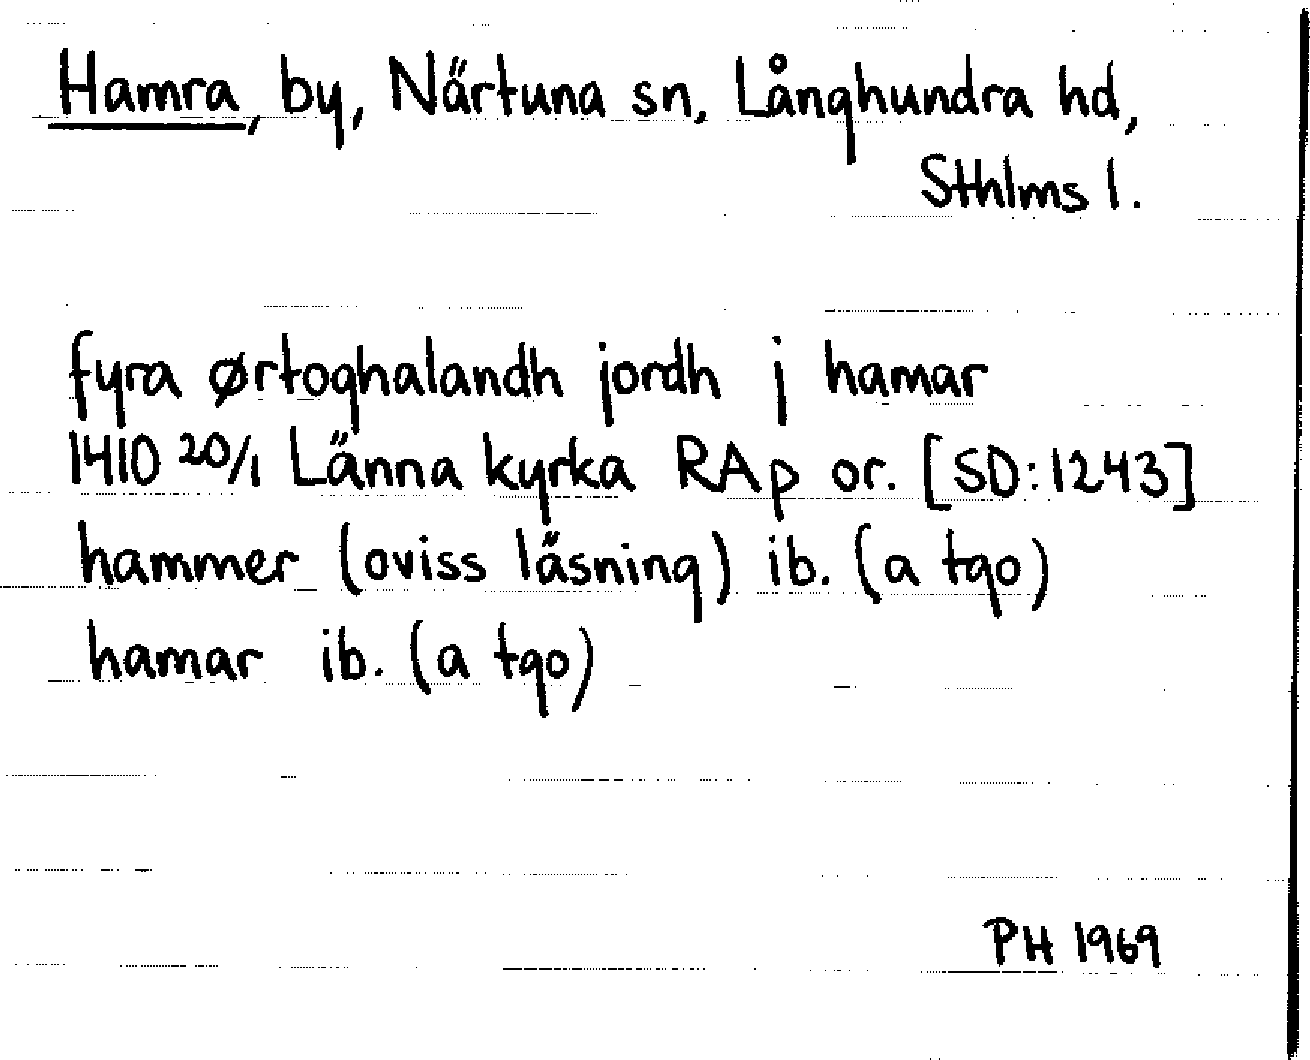 Hamra, by, Närtuna sn, Långhundra hd,
Sthlms l.
fyra ørtoghalandh jordh j hamar
1410 20/1 Länna kyrka RAp or. [SD:1243]
hammer (oviss läsning) ib. (a tgo)
hamar ib. (a tgo)
PH 1969